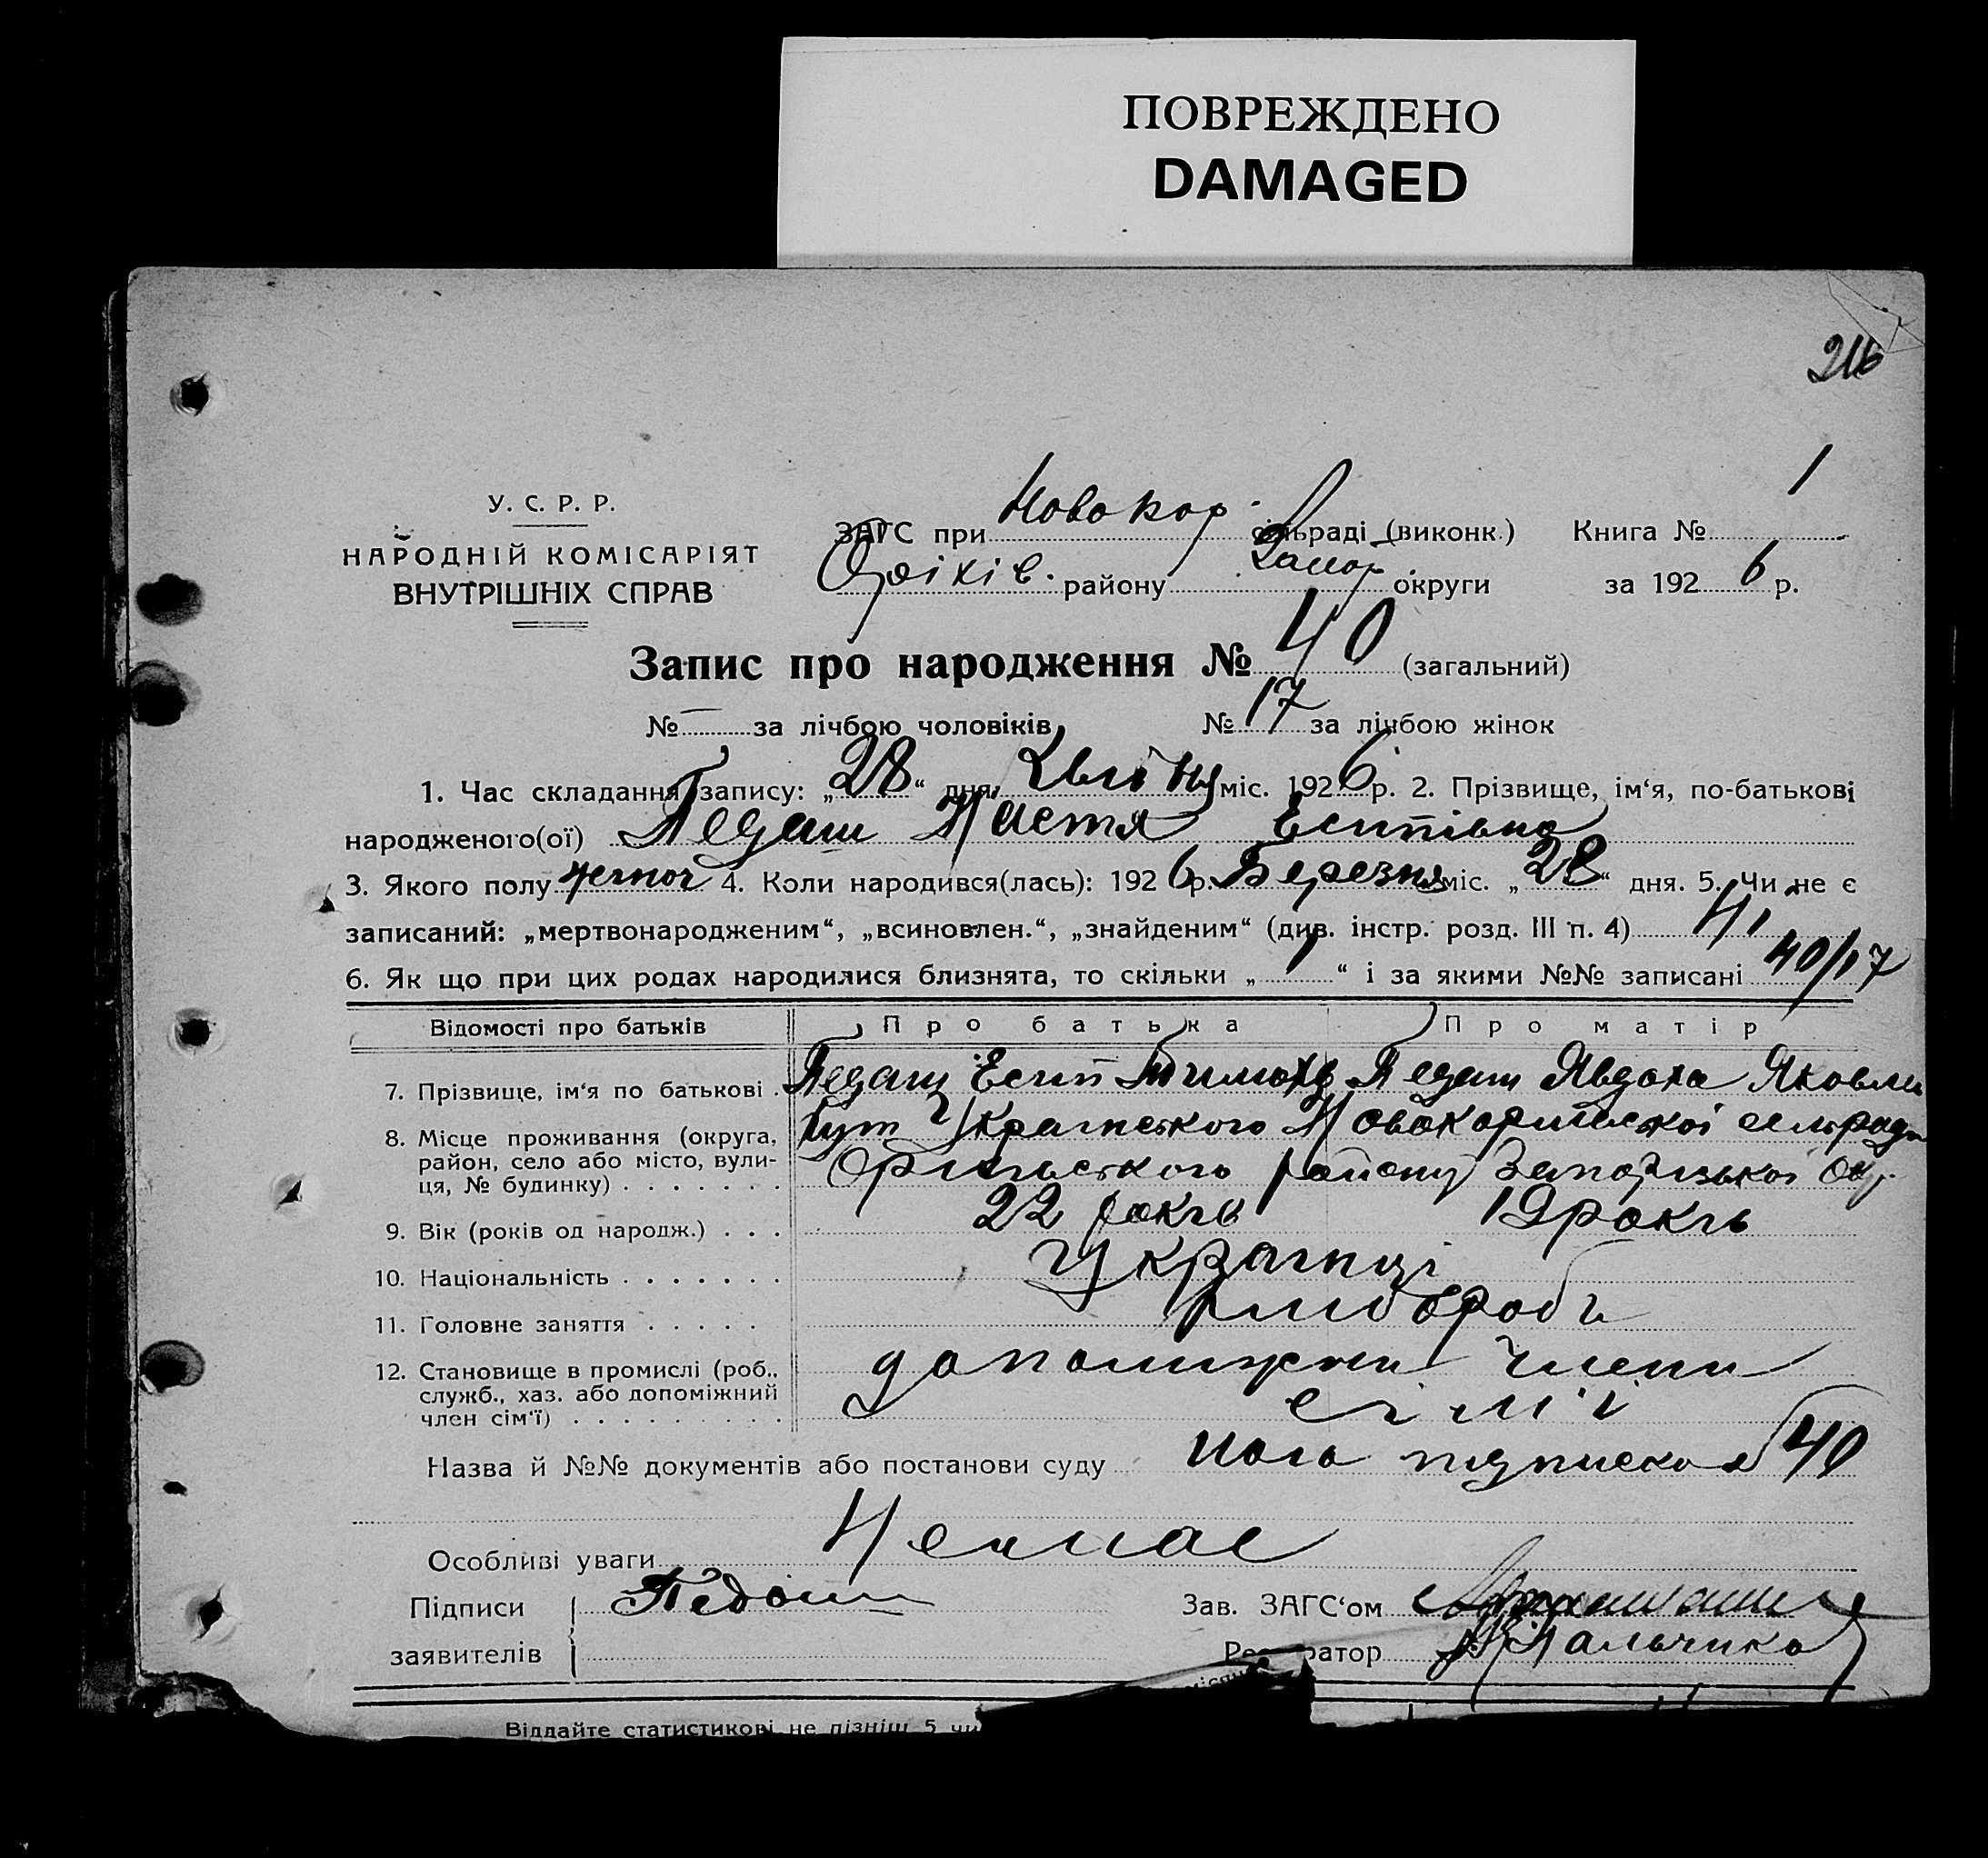 ПОВРЕЖДЕНО
DAMAGED
216
У. С. Р. Р.
НАРОДНІЙ КОМІСАРІЯТ
ВНУТРІШНІХ СПРАВ
ЗАГС при Новокар. сільраді (виконк.) Книга № 1
Оріхів. району Запор. округи за 1926 р.
Запис про народження № 40 (загальний)
№ — за лічбою чоловіків № 17 за лічбою жінок
1. Час складання запису: „28“ дня Квітня міс. 1926 р. 2. Прізвище, ім‘я, по-батькові
народженого(ої) Педаш Настя Есипівна
3. Якого полу жіноч 4. Коли народився(лась): 1926 р. Березня міс. „28“ дня. 5. Чи не є
записаний: „мертвонародженим“, „всиновлен.“, „знайденим“ (див. інстр. розд. III п. 4) Ні
6. Як що при цих родах народилися близнята, то скільки „1“ і за якими №№ записані 40/17
Відомості про батьків Про батька Про матір
7. Прізвище, ім‘я по батькові . Педаш Есип Тимохв Педаш Явдоха Яковли
8. Місце проживання (округа, хут Українського Новокарлівської сельради
район, село або місто, вули- Оріхівського району Запорізької Окр.
ця, № будинку) . . . . . . .
9. Вік (років од народж.) . . . 22 років 19 років
10. Національність . . . . . . . Українці
11. Головне заняття . . . . . хлибороби
12. Становище в промислі (роб., допоміжни члени
служб., хаз. або допоміжний сімї
член сім‘ї) . . . . . . . . .
Назва й №№ документів або постанови суду підписка 40
Особливі уваги Немає
Підписи Педаш Зав. ЗАГС‘ом
заявителів Ре ратор Мальчико
місяця
Віддайте статистикові не пізніш 5 чи